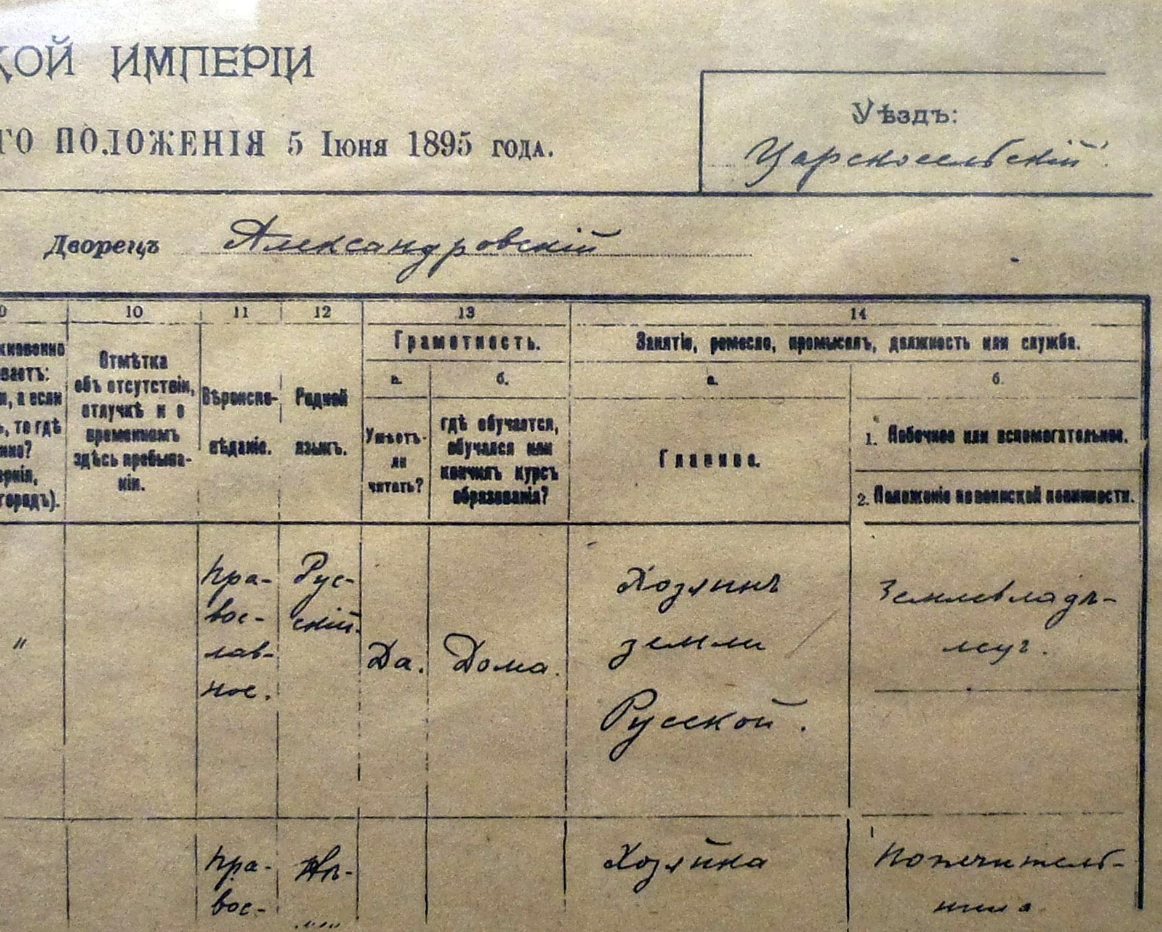 КОЙ ИМПЕРІИ
ГО ПОЛОЖЕНІЯ 5 Іюня 1895 года.
Уѣздъ:
Царскосельскій
Дворецъ Александровскій
10 11 12 13 14
Грамотность.
Занятіе, ремесло, промыселъ, должность или служба.
а. б. а. б.
ваетъ:
, а если
, то гдѣ
городъ).
Отмѣтка
объ отсутствіи,
отлучкѣ и о
временномъ
здѣсь пребыва-
ніи.
Вѣроиспо-
вѣданіе.
Родной
языкъ.
Умѣетъ-
ли
читать?
гдѣ обучается,
обучался или
кончилъ курсъ
образованія?
Главное.
1. Побочное или вспомогательное.
2. Положеніе по воинской повинности.
"
Пра-
вос-
лав-
ное.
Рус-
скій.
Да.
Дома.
Хозяинъ
земли
Русской.
Землевладѣ-
лецъ.
Пра-
вос-
Нѣ-
Хозяйка
Попечитель-
ница